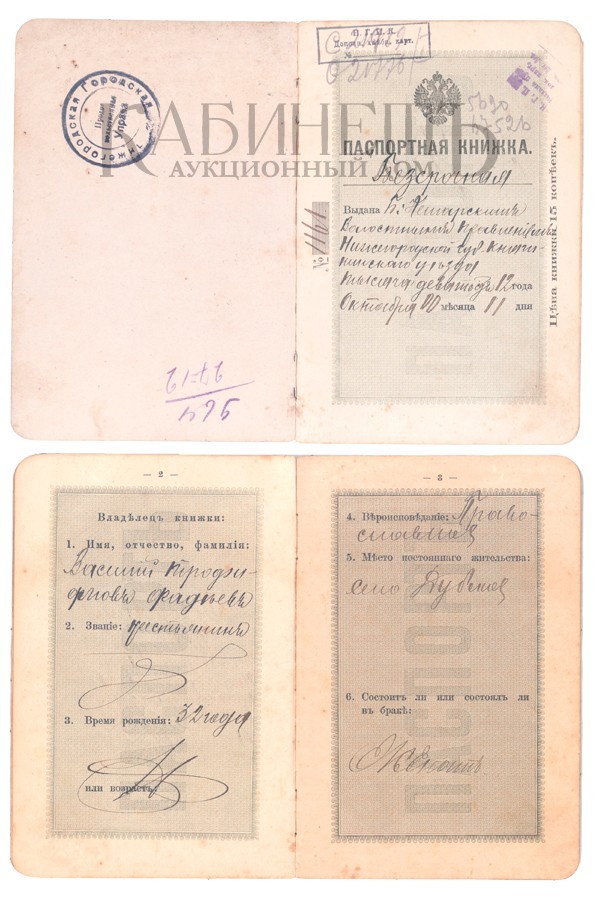 Нижегородская Городская
Управа
КАБИНЕТЪ
АУКЦИОННЫЙ ДОМ
П. Г. П. К.
№
020776
5620
ПАСПОРТНАЯ КНИЖКА.
Безсрочная
Выдана
Волостнымъ Правленіемъ
Нижегородской губ. Княги-
нинскаго уѣзда
тысяча девятьсотъ 12 года
Октября мѣсяца 11 дня
№ 1161
Цѣна книжки 15 копѣекъ.
564
27-12
— 2 —
Владѣлецъ книжки:
1. Имя, отчество, фамилія:
Василій Трофи-
мовъ Фадѣевъ
2. Званіе: крестьянинъ
3. Время рожденія: 32 года
или возрастъ:
— 3 —
4. Вѣроисповѣданіе: Право-
славная
5. Мѣсто постояннаго жительства:
село
6. Состоитъ ли или состоялъ ли
въ бракѣ:
Женатъ